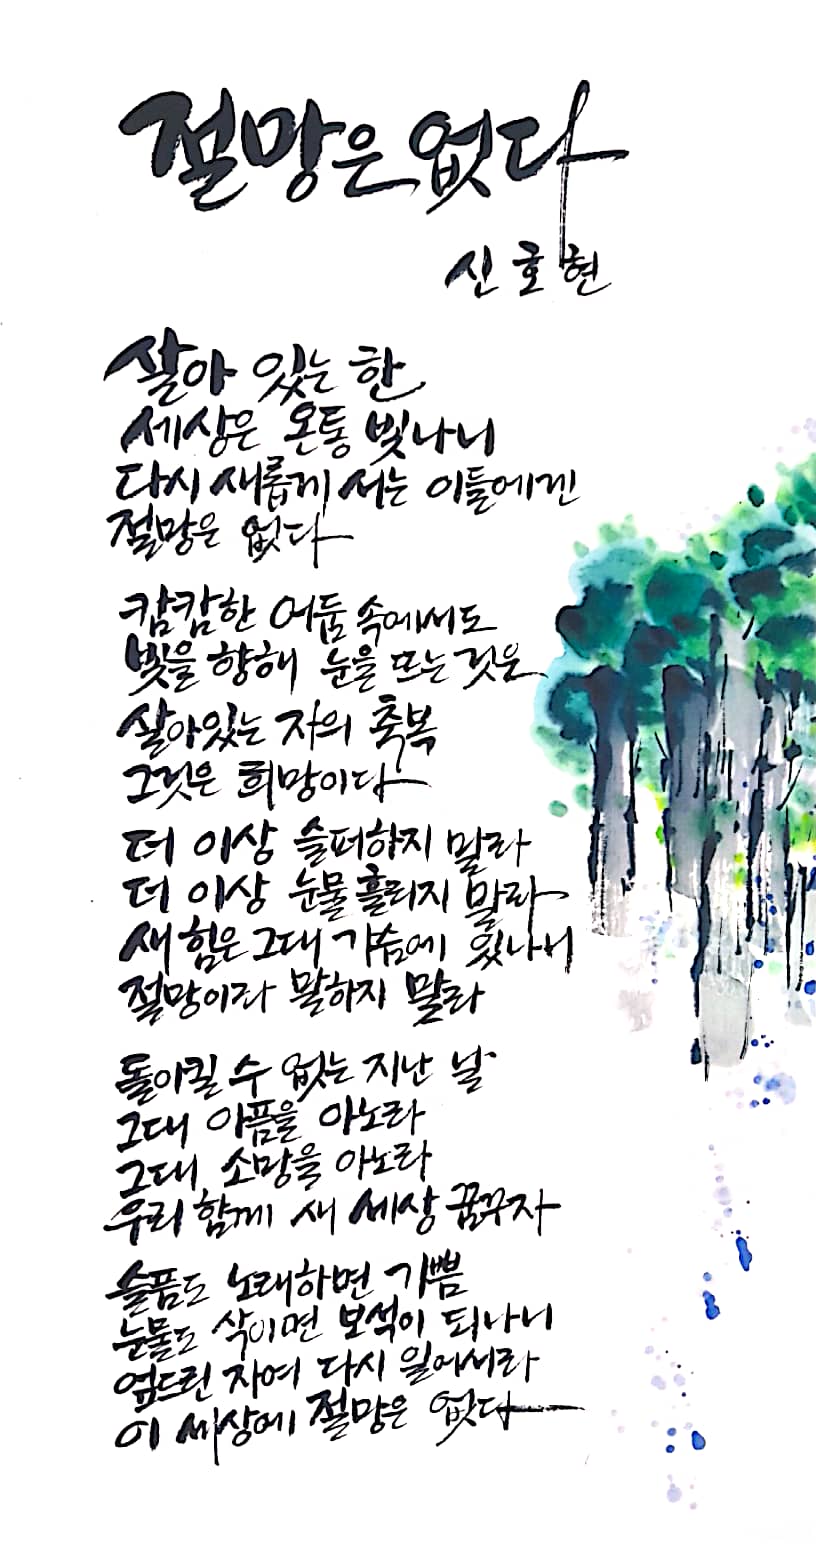 절망은 없다
신호현
살아 있는 한
세상은 온통 빛나니
다시 새롭게 서는 이들에겐
절망은 없다
캄캄한 어둠 속에서도
빛을 향해 눈을 뜨는 것은
살아있는 자의 축복
그것은 희망이다
더 이상 슬퍼하지 말라
더 이상 눈물 흘리지 말라
새 힘은 그대 가슴에 있나니
절망이라 말하지 말라
돌이킬 수 없는 지난 날
그대 아픔을 아노라
그대 소망을 아노라
우리 함께 새 세상 꿈꾸자
슬픔도 노래하면 기쁨
눈물도 삭이면 보석이 되나니
엎드린 자여 다시 일어서라
이 세상에 절망은 없다